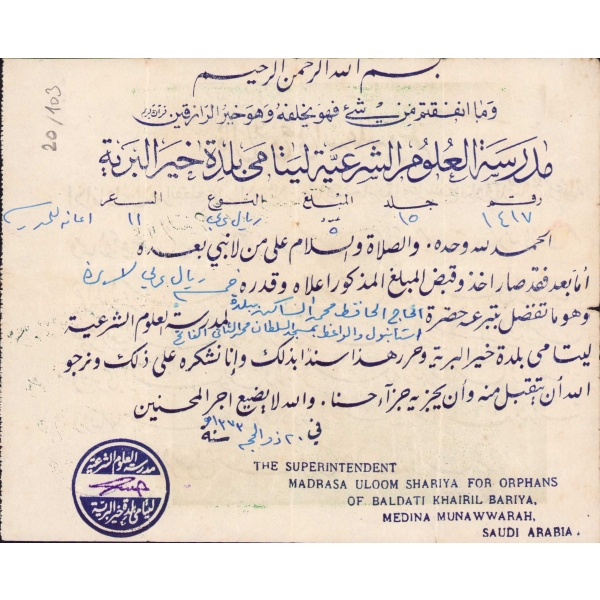 20/103
بسم الله الرحمن الرحيم
وما انفقتم من شئ فهو يخلفه وهو خير الرازقين
مدرسة العلوم الشرعية ليتامى بلدة خير البرية
رقم جلد المبلغ النوع السعر
١٤١٧ ١٥ ٥ ريال عربي ١١ اعانه للمدرسة
الحمد لله وحده. والصلاة والسلام على من لا نبي بعده
أما بعد فقد صار اخذ وقبض المبلغ المذكور اعلاه وقدره خمسة ريال عربي لا غيره
وهو ما تفضل بتبرعه حضرة الحاج الحافظ محمد الساكن ببلدة
استانبول والواعظ بمسجد السلطان محمد الثاني الفاتح لمدرسة العلوم الشرعية
ليتامى بلدة خير البرية وحرر هذا سندا بذلك وإنا نشكره على ذلك ونرجو
الله أن يتقبل منه وأن يجزيه جزآء حسنا. والله لا يضيع اجر المحسنين
في ٢٠ ذو الحجه سنة ١٣٧٣
مدرسة العلوم الشرعية
ليتامى بلدة خير البرية
THE SUPERINTENDENT
MADRASA ULOOM SHARIYA FOR ORPHANS
OF BALDATI KHAIRIL BARIYA,
MEDINA MUNAWWARAH,
SAUDI ARABIA.